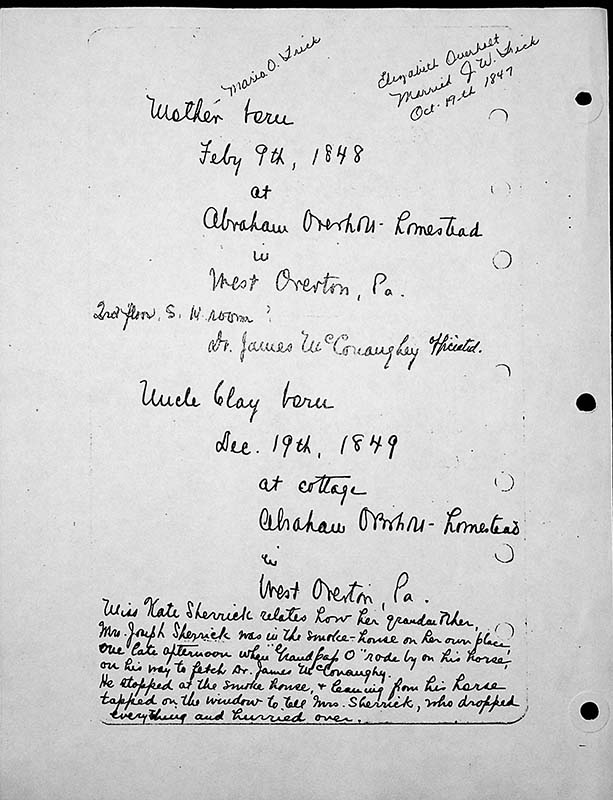 Maria O. Frick
Elizabeth Overholt
Married J. W. Frick
Oct. 19th 1847
Mother born
Feby 9th, 1848
at
Abraham Overholt homestead
in
West Overton, Pa.
2nd floor, S. W. room?
Dr. James McConaughey officiated.
Uncle Clay born
Dec. 19th, 1849
at cottage
Abraham Overholt homestead
in
West Overton, Pa.
Miss Kate Sherrick relates how her grandmother,
Mrs. Joseph Sherrick was in the smoke-house on her own place,
one late afternoon when "Grandpap O" rode by on his horse,
on his way to fetch Dr. James McConaughy.
He stopped at the smoke house, & leaning from his horse
tapped on the window to tell Mrs. Sherrick, who dropped
everything and hurried over.